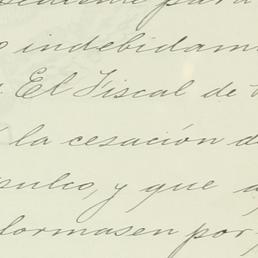 para
indebidam
El Fiscal de
la cesación d
pulco, y que a
formasen por